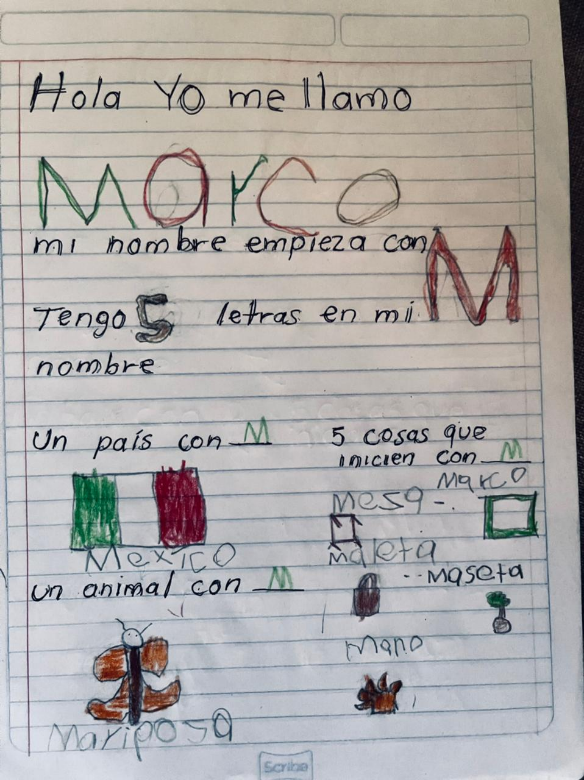 Hola Yo me llamo
Marco
mi nombre empieza con M
Tengo 5 letras en mi
nombre
Un país con M
Mexico
un animal con M
Mariposa
5 cosas que
inicien con M
Marco
Mesa -.
maleta
-- maseta
Mano
Scribe